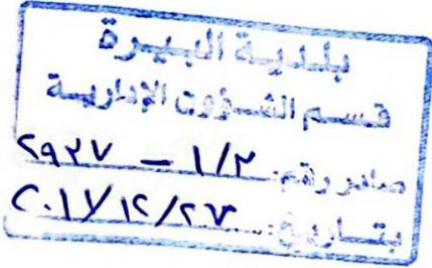 بلدية البيرة
قسم الشؤون الإدارية
صادر رقم: ١/٢ - ٢٩٣٧
بتاريخ: ٢٠١٧/١٢/٢٧